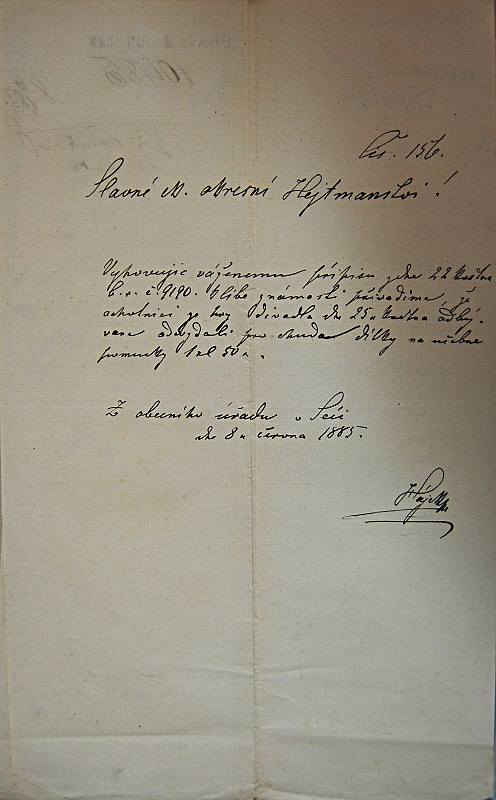 Čís. 156.
Slavné ck. okresní Hejtmanství!
Vyhovujíc váženému přípisu z dne 22 května
b. r. č. 9190. k libé známosti přivádíme, že
ochotníci ze hry divadla dne 25ho května odbý-
vané odevzdali pro chudé dítky na učebné
pomucky 1 zl 50 k.
Z obecního úřadu v Seči
dne 8ho června 1885.
Hájek